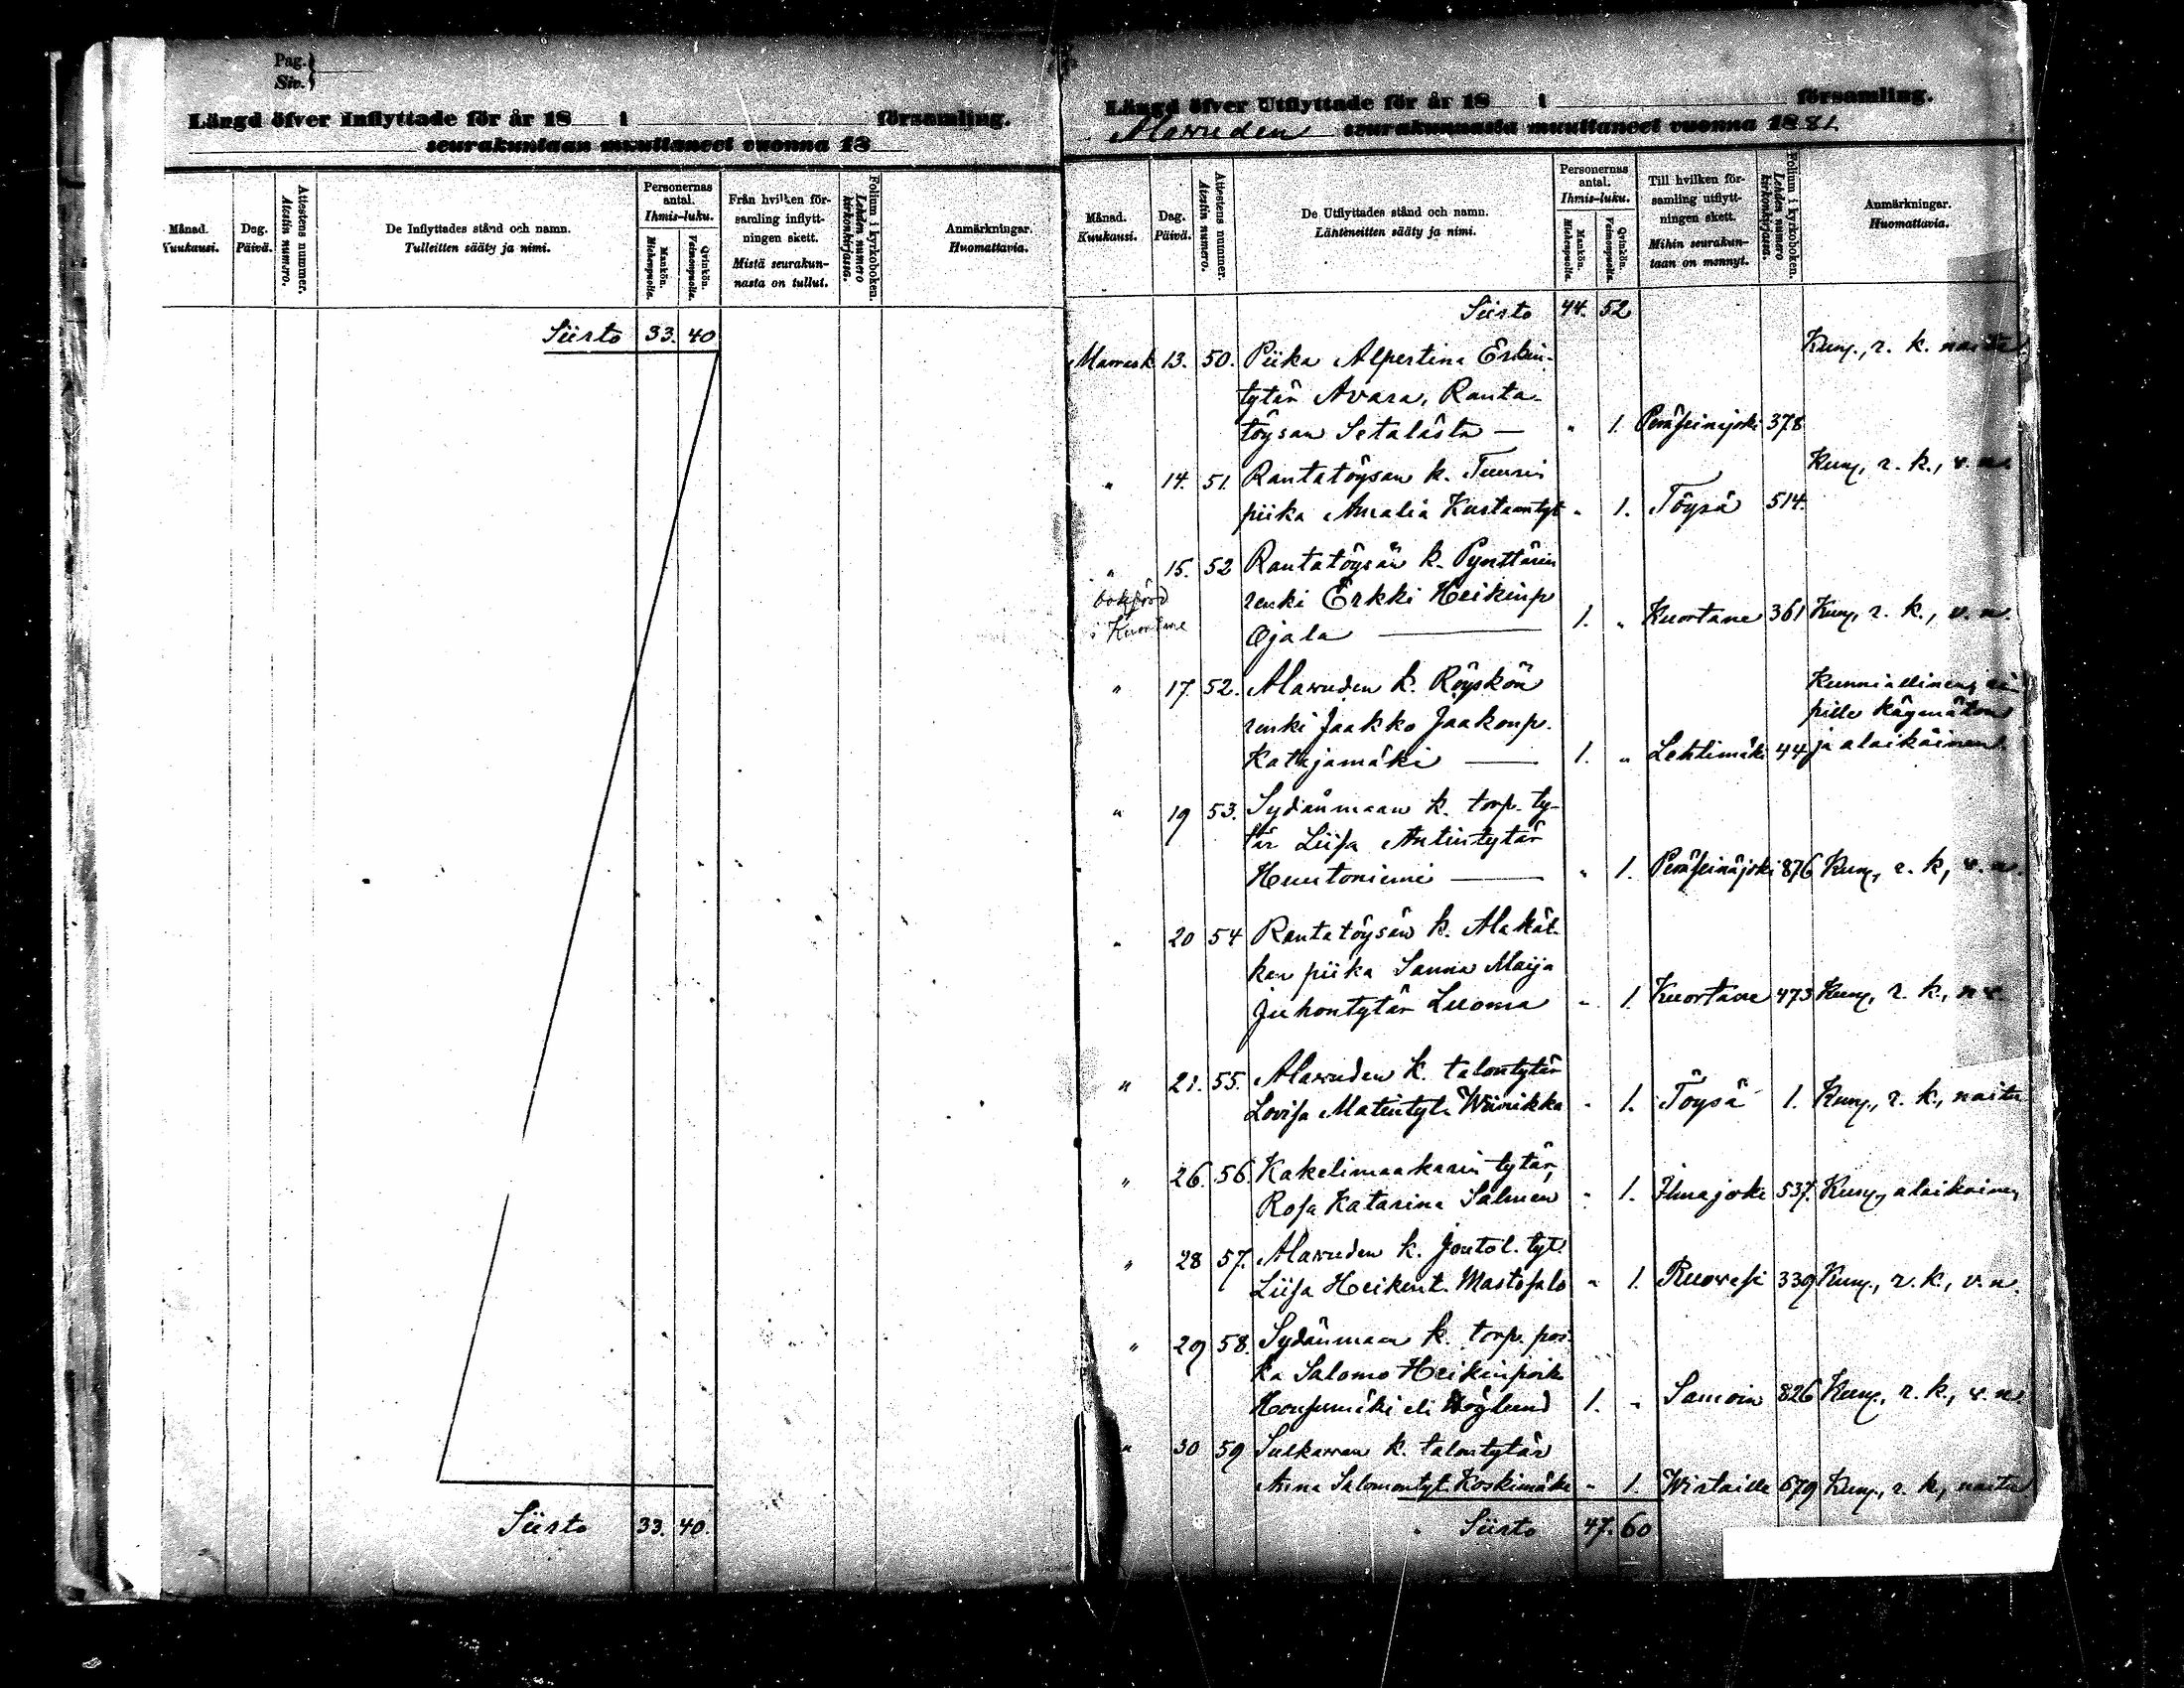 Pag.
Siv.
Längd öfver Inflyttade för år 18 i församling.
seurakuntaan muuttaneet vuonna 18
Månad. Kuukausi.
Dag. Päivä.
Attestens nummer. Atestin numero.
De Inflyttades stånd och namn.
Tulleitten sääty ja nimi.
Personernas antal.
Ihmis-luku.
Mankön. Miehenpuolia.
Qvinkön. Vaimonpuolia.
Från hvilken för-
samling inflytt-
ningen skett.
Mistä seurakun-
nasta on tullut.
Folium i kyrkoboken.
Lehden numero kirkonkirjassa.
Anmärkningar.
Huomattavia.
Siirto 33. 40
Siirto 33. 40.
Längd öfver Utflyttade för år 18 i församling.
Alawuden seurakunnasta muuttaneet vuonna 1881
Månad. Kuukausi.
Dag. Päivä.
Attestens nummer. Atestin numero.
De Utflyttades stånd och namn.
Lähteneitten sääty ja nimi.
Personernas antal.
Ihmis-luku.
Mankön. Miehenpuolia.
Qvinkön. Vaimonpuolia.
Till hvilken för-
samling utflytt-
ningen skett.
Mihin seurakun-
taan on mennyt.
Folium i kyrkoboken.
Lehden numero kirkonkirjassa.
Anmärkningar.
Huomattavia.
Siirto 44. 52
Marrask 13. 50. Piika Alpertina Erkin- Kunn., r. k. naitu
tytär Avara, Ranta-
töysän Setalästä — " 1. Peräseinäjoki 378
" 14. 51. Rantatöysän k. Tuurin Kunn, r. k., v. n.
piika Amalia Kustaantyt " 1. Töysä 514.
" 15. 52 Rantatöysän k. Pynttärin
bokförd renki Erkki Heikinp
i Kuortane Ojala — 1. " Kuortane 361 Kunn, r. k., v. n.
" 17. 52. Alawuden k. Röyskön Kunniallinen,
renki Jaakko Jaakonp. pille käymätön
Katajamäki — 1. " Lehtimäki 44 ja alaikäinen
" 19 53. Sydänmaan k. torp. ty-
tär Liisa Antintytär
Huntoniemi — " 1. Peräseinäjoki 876 Kunn, r. k, v. n.
" 20 54 Rantatöysän k. Alakät-
kan piika Sanna Maija
Juhontytär Luoma " 1. Kuortane 473 Kunn, r. k., n v.
" 21. 55. Alawuden k. talontytär
Lovisa Matintyt. Wiinikka " 1. Töysä 1. Kunn., r. k., naitu
" 26. 56. Kakelimaakarin tytär,
Rosa Katarina Salmen " 1. Ilmajoki 537. Kunn, alaikäinen
" 28 57. Alawuden k. Joutol. tyt.
Liisa Heikint. Mastosalo " 1. Ruowesi 339 Kunn., r. k., v. n.
" 29 58. Sydänmaan k. torp. poi-
ka Salomo Heikinpoik
eli Höglund 1. " Samoin 826 Kunn., r. k., v. n.
" 30 59 Sulkawan k. talontytär
Anna Salomontyt. Koskimäki " 1. Wirtaille 679 Kunn., r. k, naitu
Siirto 47. 60